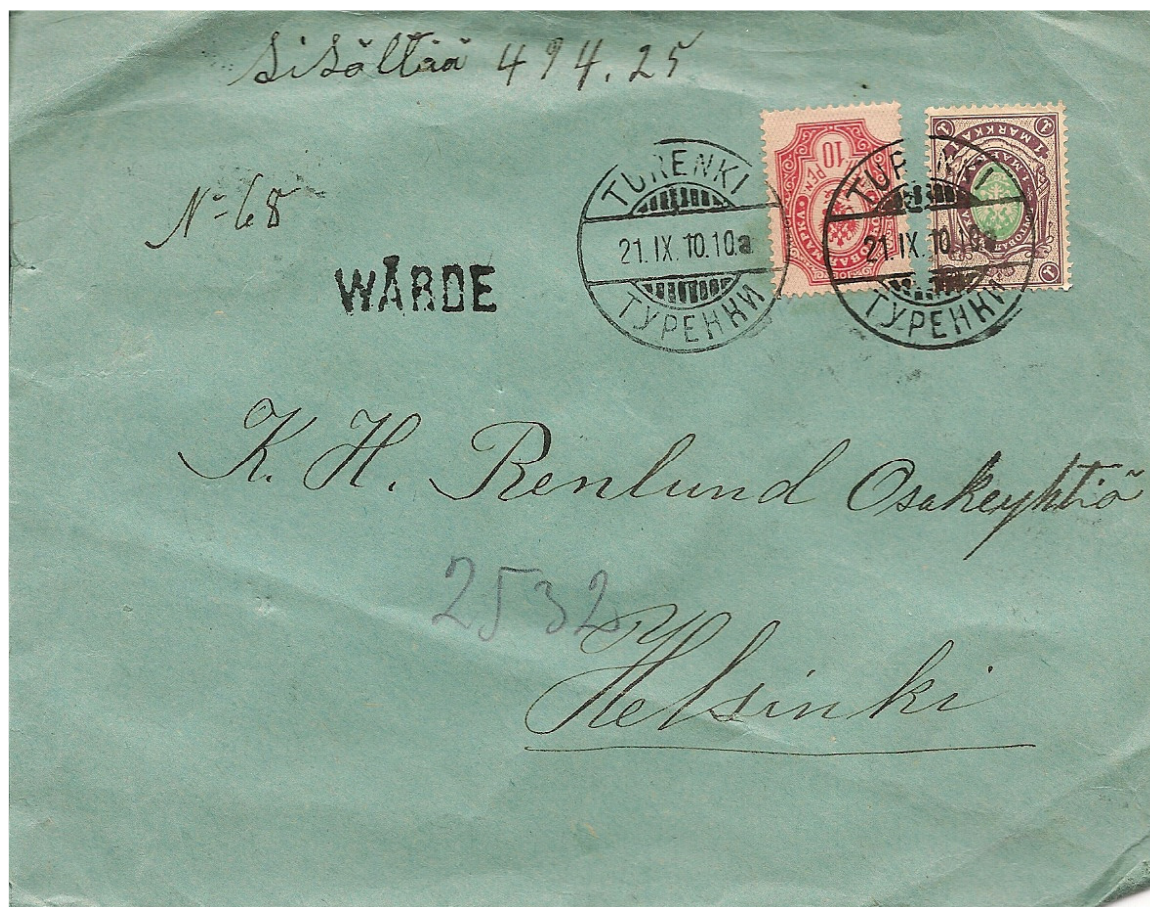 Sisältää 494.25
No 68
WÄRDE
TURENKI
21.IX.10.10a
ТУРЕНКИ
10 PEN
ПОЧТОВАЯ МАРКА
TURENKI
21.IX.10.10a
ТУРЕНКИ
1 MARKKA 1
1
K. H. Renlund Osakeyhtiö
2532
Helsinki